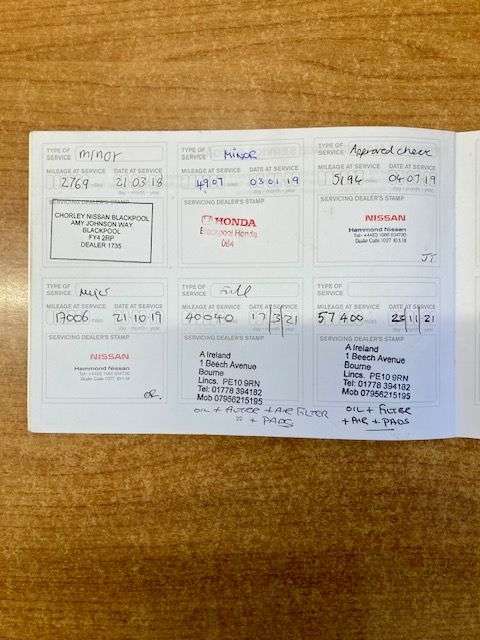 TYPE OF SERVICE minor
MILEAGE AT SERVICE DATE AT SERVICE
2769 21 03 18
SERVICING DEALER'S STAMP
CHORLEY NISSAN BLACKPOOL
AMY JOHNSON WAY
BLACKPOOL
FY4 2RP
DEALER 1735
TYPE OF SERVICE MINOR
MILEAGE AT SERVICE DATE AT SERVICE
4907 03 01 19
SERVICING DEALER'S STAMP
HONDA
Blackpool Honda
084
TYPE OF SERVICE Approved check
MILEAGE AT SERVICE DATE AT SERVICE
5194 04 07 19
SERVICING DEALER'S STAMP
NISSAN
Hammond Nissan
JT
TYPE OF SERVICE
MILEAGE AT SERVICE DATE AT SERVICE
17006 21 10 19
SERVICING DEALER'S STAMP
NISSAN
Hammond Nissan
TYPE OF SERVICE Full
MILEAGE AT SERVICE DATE AT SERVICE
40040 17/3/21
SERVICING DEALER'S STAMP
A Ireland
1 Beech Avenue
Bourne
Lincs. PE10 9RN
Tel: 01778 394182
Mob 07956215195
OIL + FILTER + AIR FILTER
+ PADS
TYPE OF SERVICE
MILEAGE AT SERVICE DATE AT SERVICE
57400 11 21
SERVICING DEALER'S STAMP
A Ireland
1 Beech Avenue
Bourne
Lincs. PE10 9RN
Tel: 01778 394182
Mob 07956215195
OIL + FILTER
+ AIR + PADS